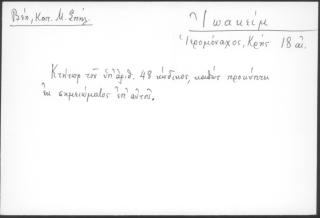 Βέη, Κατ. Μ. Σπήλ.
Ἰωακείμ
Ἱερομόναχος, Κρής 18 αἰ.
Κτήτωρ τοῦ ὑπ' ἀριθ. 48 κώδικος, καθὼς προκύπτει
ἐκ σημειώματος ἐπ' αὐτοῦ.